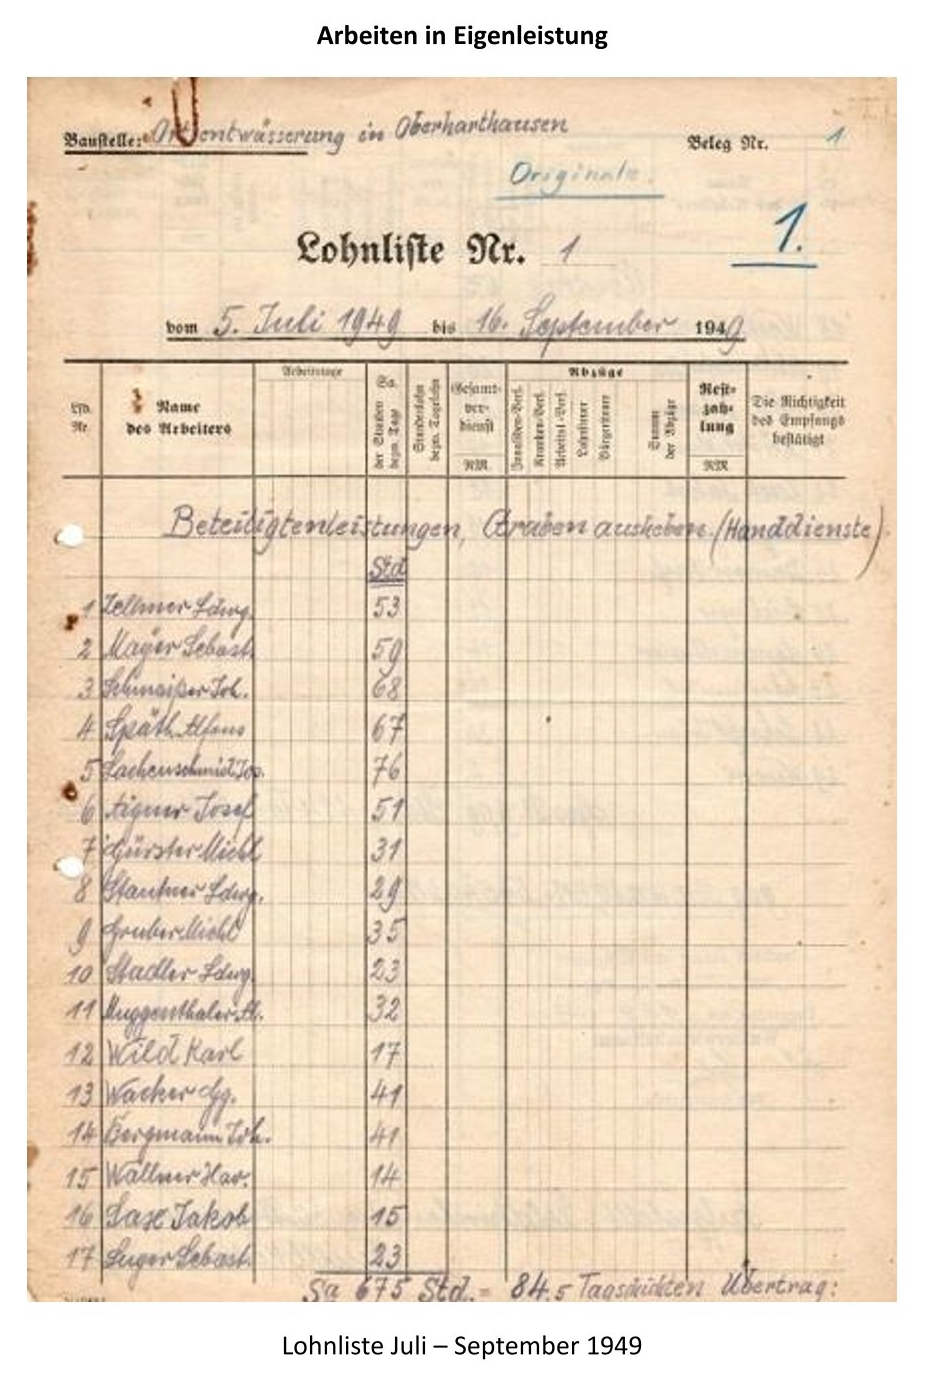 Arbeiten in Eigenleistung
Baustelle: Ortsentwässerung in Oberharthausen
Beleg Nr. 1
Originale.
1.
Lohnliste Nr. 1
vom 5. Juli 1949 bis 16. September 1949
Lfd. Nr.
Name des Arbeiters
Arbeitstage
Sa. der Stunden bezw. Tage
Stundenlohn bezw. Tagelohn
Gesamt-
ver-
dienst
RM
Abzüge
Invaliden-Vers.
Kranken-Vers.
Arbeitsl.-Vers.
Lohnsteuer
Bürgersteuer
Summe der Abzüge
Rest-
zah-
lung
RM
Die Richtigkeit
des Empfangs
bestätigt
Beteiligtenleistungen, Graben ausheben. (Handdienste)
Std
1 Zellmer Ldwg. 53
2 Mayer Sebast. 59
3 Schmaißer Joh. 68
4 Späth Alfons 67
5 Lachenschmid Jos. 76
6 Aigner Josef 51
7 Gürster Michl 31
8 Stantner Ldwg. 29
9 Gruber Michl 35
10 Stadler Ldwg. 23
11 Muggenthaler A. 32
12 Wild Karl 17
13 Wacker Gg. 41
14 Bergmann Joh. 41
15 Wallner Xav. 14
16 Sase Jakob 15
17 Luger Sebast. 23
Sa 675 Std. = 84.5 Tagschichten Übertrag:
Lohnliste Juli – September 1949